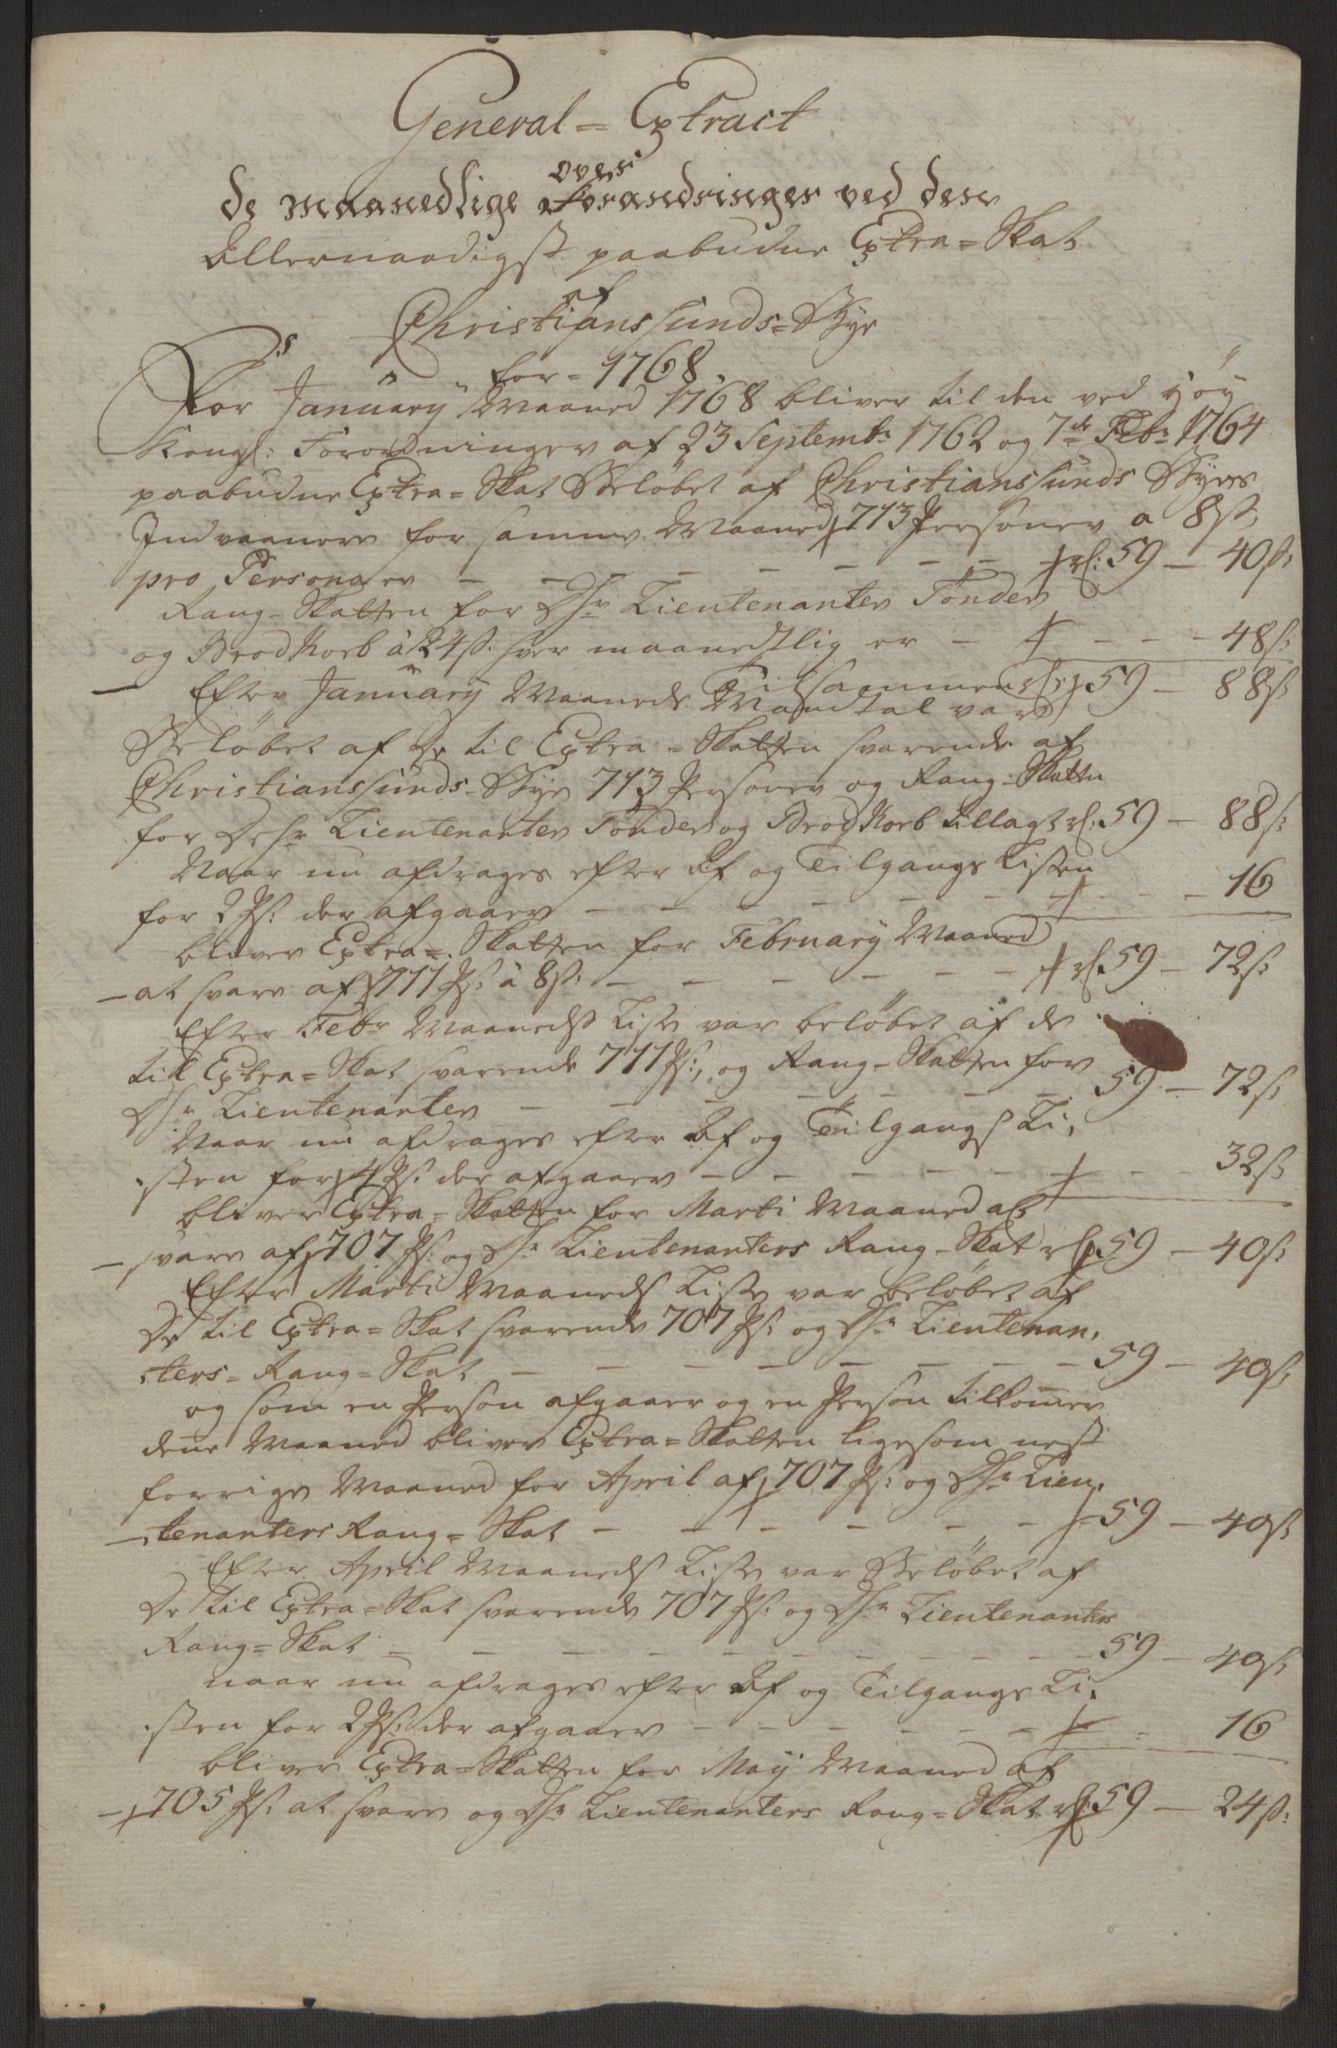 General = Extract
over
de maanedlige Forandringer ved den
Allernaadigst paabudne Extra = Skat
af
Christianssunds = Bye
for = 1768.
For January Maaned 1768 bliver til den ved Høy
Kongl: Forordninger af 23 Septembr 1762 og 7de Febr 1764
paabudne Extra = Skat Beløbet af Christianssunds Byes
Indvaanere for samme Maaned 713 Personer a 8s:
pro Persona er — — — — — — — rd: 59 — 40s:
Rang-Skatten for Dhr Lieutenanter Tønder
og BrodKorb à 24s. hver maanedtlig er — — — — 48s:
Tilsammen rd: 59 — 88s
Efter January Maaneds Mandtal var
Beløbet af De til Extra = Skatten svarende af
Christianssunds-Bye 713 Personer og Rang-Skatten
for Dehr Lieutenanter Tønder og BrodKorb tillagt rd: 59 — 88s:
Naar nu afdrages efter Af og Tilgangs Listen
for 2 Ps: der afgaaer — — — — — — — — 16
bliver Extra = Skatten for February Maaned
— at svare af 711 Ps: à 8s: — — — — — rd. 59 — 72s:
Efter Febr Maaneds Liste var beløbet af de
till Extra = Skat svarende 711 Ps:, og Rang-Skatten for
Dhr Lieutenanter — — — — — — — 59 — 72s:
Naar nu afdrages efter Af og Tilgangs Li,
,sten for 4 Ps: der afgaaer — — — — — — — 32s:
bliver Extra = Skatten for Marti Maaned at
— svare af 707 Ps: og Dhr Lieutenanters Rang-Skat rd. 59 — 40s:
Efter Marti Maaneds Liste var beløbet af
De til Extra = Skat svarende 707 Ps: og Dhr Lieutenan,
,ters = Rang = Skat — — — — — — — 59 — 40s:
og som en Person afgaaer og en Person tilkomer
dene Maaned bliver Extra = Skatten ligesom nest
forrige Maaned for April af 707 Ps: og Dhr Lieu,
— ,tenanters Rang = Skat — — — — — — 59 — 40s:
Efter April Maaneds Liste var Beløbet af
De til Extra = Skat svarende 707 Ps: og Dhr Lieutenanters
Rang = Skat — — — — — — — — 59 — 40s:
naar nu afdrages efter Af og Tilgangs Li,
,sten for 2 Ps: der afgaaer — — — — — — 16
bliver Extra = Skatten for Maij Maaned af
— 705 Ps: at svare og Dhr Lieutenanters Rang = Skat rd: 59 — 24s: